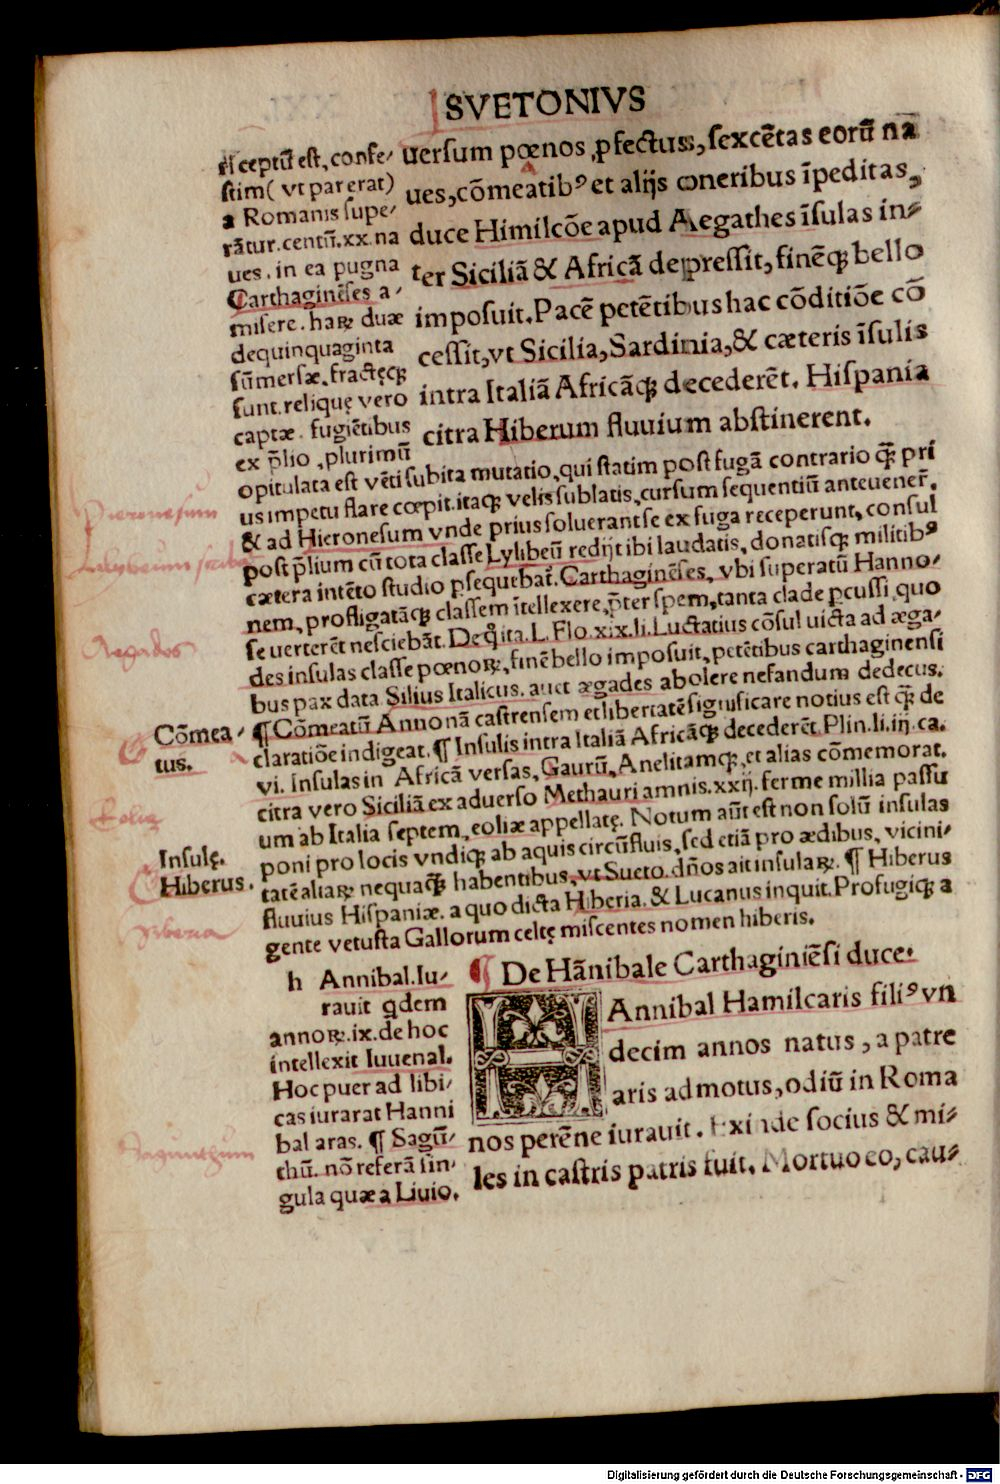 SVETONIVS
uersum pœnos ,pfectus, sexcētas eorū na
ues, cōmeatib⁹ et alijs oneribus īpeditas,
duce Himilcōe apud Aegathes īsulas in-
ter Siciliā & Africā depressit, finēqꝫ bello
imposuit. Pacē petētibus hac cōditiōe cō
cessit, vt Sicilia, Sardinia, & cæteris īsulis
intra Italiā Africāqꝫ decederēt. Hispania
citra Hiberum fluuium abstinerent.
ceptū est, confe-
stim( vt par erat)
a Romanis supe-
rātur. centū. xx. na
ues. in ea pugna
Carthaginēses a-
misere. haꝝ duæ
dequinquaginta
sūmersæ. fractęqꝫ
sunt. reliquę vero
captæ. fugiētibus
ex p̄lio ,plurimū
opitulata est vēti subita mutatio, qui statim post fugā contrario qꝫ̄ pri
us impetu flare cœpit. itaqꝫ velis sublatis, cursum sequentiū anteuener̄.
& ad Hieronesum vnde prius soluerant se ex fuga receperunt, consul
post p̄lium cū tota classe Lylibeū redijt ibi laudatis, donatisqꝫ militib⁹
cætera intēto studio ꝑsequebat̄. Carthaginēses, vbi superatū Hanno-
nem, profligatāqꝫ classem ītellexere, p̄ter spem, tanta clade ꝑcussi, quo
se uerterēt nesciebāt. De qͥ ita. L. Flo. xix. li. Luctatius cōsul uicta ad æga-
des insulas classe pœnoꝝ, finē bello imposuit, petētibus carthaginensi
bus pax data. Silius Italicus. auct ægades abolere nefandum dedecus.
¶ Cōmeatū Annonā castrensem et libertatē significare notius est qꝫ̄ de
claratiōe indigeat. ¶ Insulis intra Italiā Africāqꝫ decederēt. Plin. li. iij. ca.
vi. Insulas in Africā versas, Gaurū, Anelitamqꝫ, et alias cōmemorat.
citra vero Siciliā ex aduerso Methauri amnis. xxij. ferme millia passu
um ab Italia septem, eoliæ appellatę. Notum aūt est non solū insulas
poni pro locis vndiqꝫ ab aquis circūfluis, sed etiā pro ædibus, vicini-
tatē aliaꝝ nequaqꝫ̄ habentibus, vt Sueto. dños ait insulaꝝ. ¶ Hiberus
fluuius Hispaniæ. a quo dicta Hiberia. & Lucanus inquit. Profugiqꝫ a
gente vetusta Gallorum celtę miscentes nomen hiberis.
Cōmea-
tus.
Insulę.
Hiberus.
Hieronesum
Lilybeum
Aegados
Eolię
Yberia
Sagunthum
h Annibal. Iu-
rauit qdem
annoꝝ. ix. de hoc
intellexit Iuuenal.
Hoc puer ad libi-
cas iurarat Hanni
bal aras. ¶ Sagū-
thū. nō referā sin-
gula quæ a Liuio.
¶ De Hānibale Carthaginiēsi duce.
HAnnibal Hamilcaris fili⁹ vn
decim annos natus, a patre
aris admotus, odiū in Roma
nos perēne iurauit. Exinde socius & mi-
les in castris patris fuit. Mortuo eo, cau-
Digitalisierung gefördert durch die Deutsche Forschungsgemeinschaft - DFG